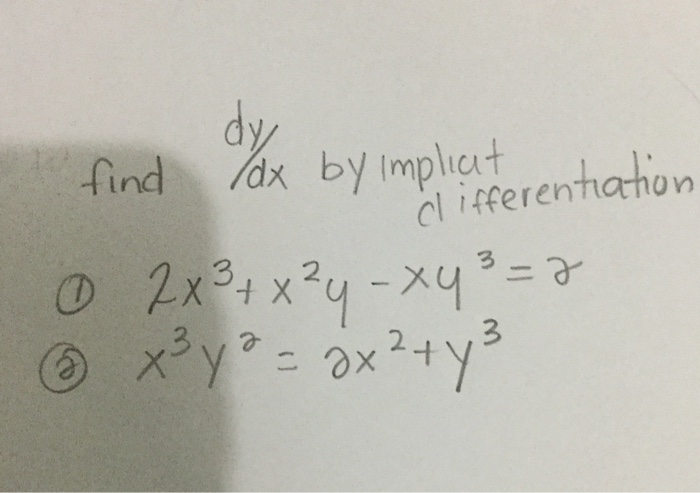 find dy/dx by implicit
differentiation
① 2x³ + x²y - xy³ = 2
② x³y² = 2x² + y³